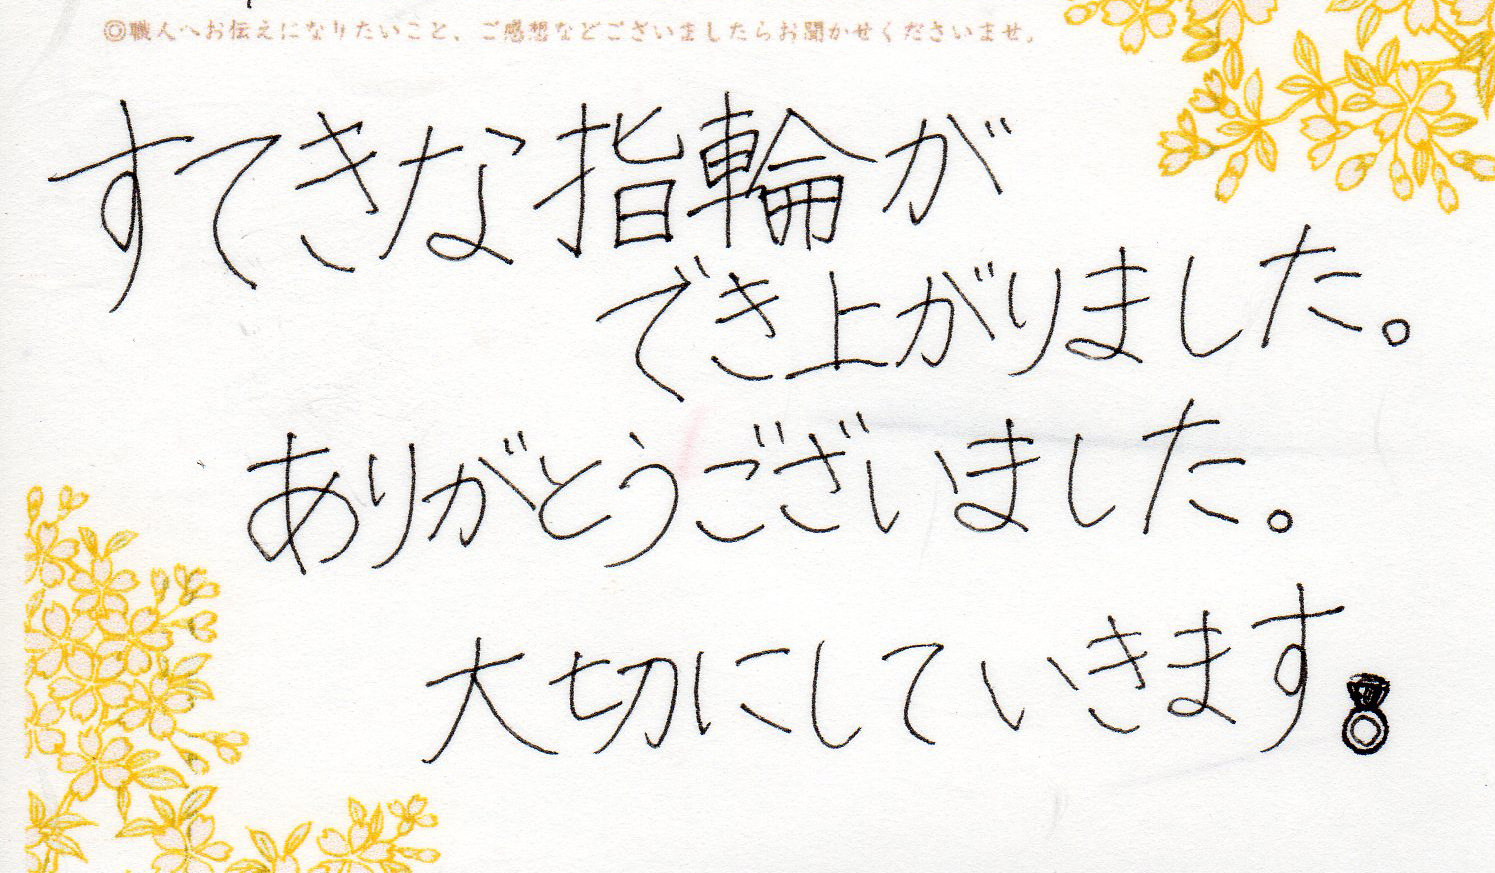 ◎職人へお伝えになりたいこと、ご感想などございましたらお聞かせくださいませ。
すてきな指輪が
でき上がりました。
ありがとうございました。
大切にしていきます